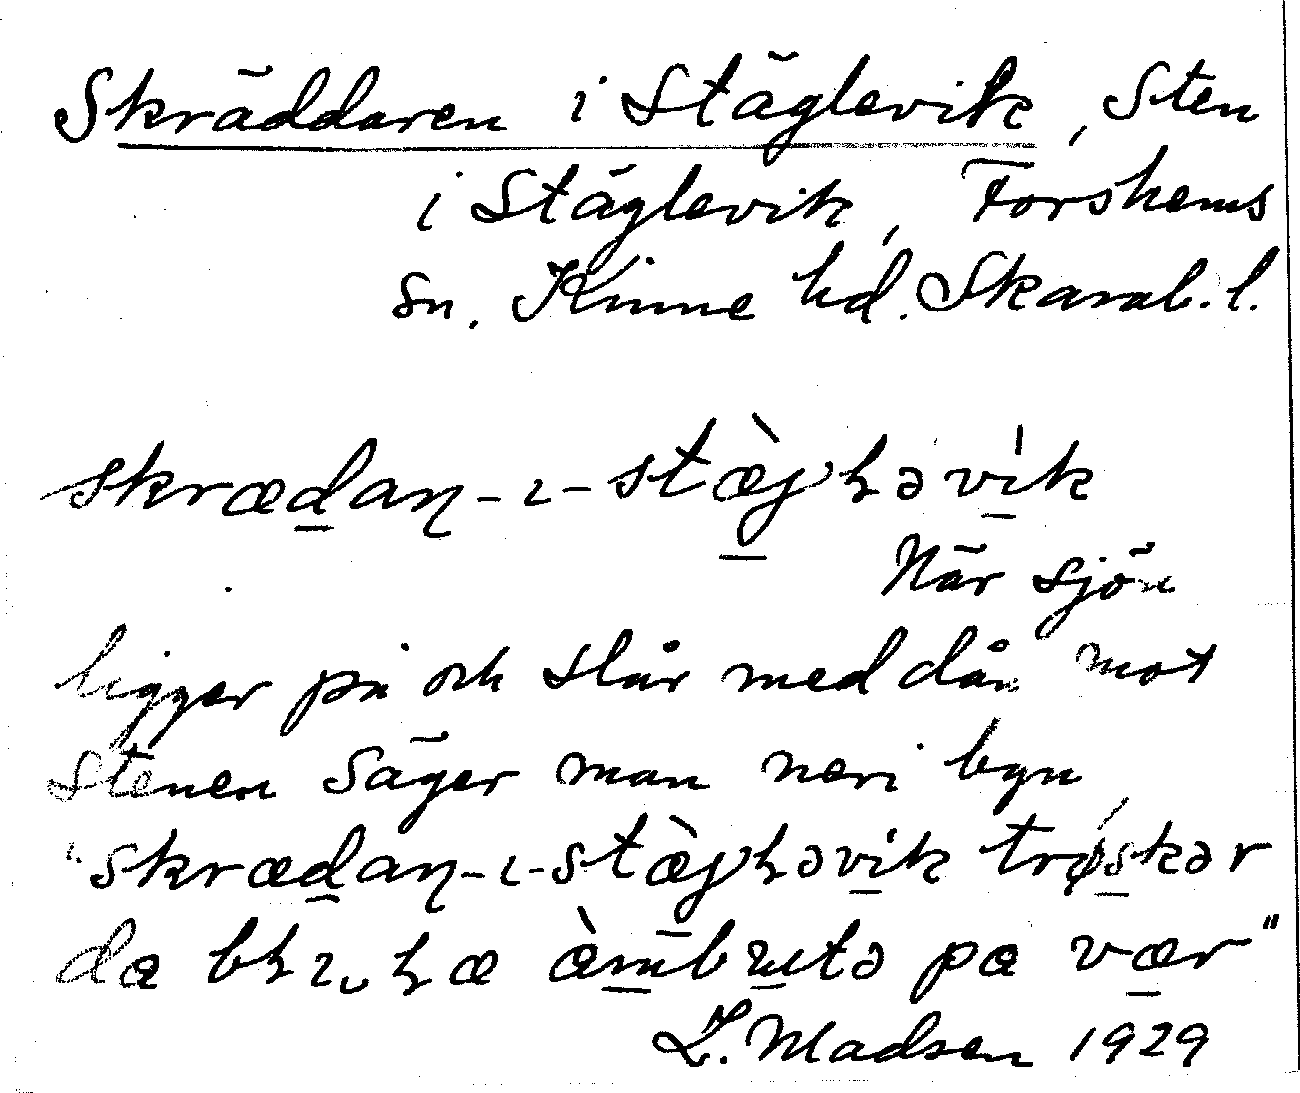 Skräddaren i Stäglevik, Sten
i Stäglevik, Forshems
sn. Kinne hd. Skarab. l.
skrædaɳ-ɩ-stæ̀jɦəvik
När sjön
ligger på och slår med dån mot
stenen säger man neri byn
"skrædaɳ-ɩ-stæ̀jɦəvik trøskər
da æ̀mbɯtə pa vær"
Z. Madsen 1929